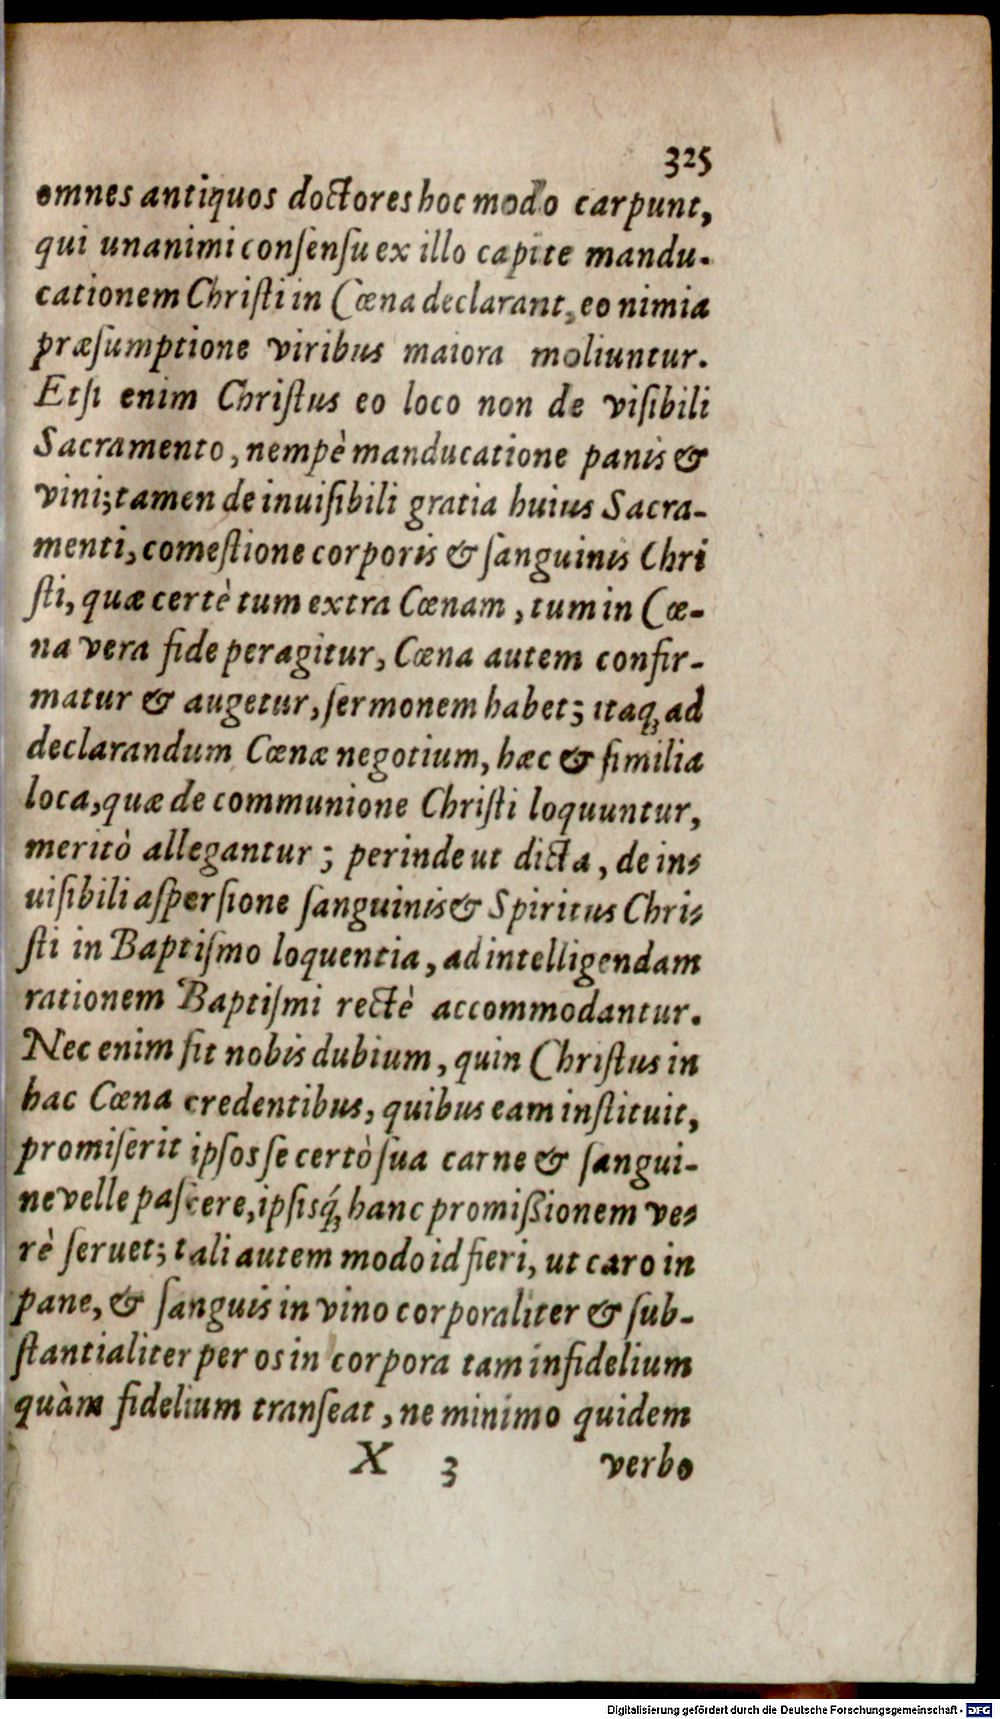 325
omnes antiquos doctores hoc modo carpunt,
qui unanimi consensu ex illo capite mandu-
cationem Christi in Cœna declarant, eo nimia
præsumptione viribus maiora moliuntur.
Etsi enim Christus eo loco non de visibili
Sacramento, nempè manducatione panis &
vini; tamen de inuisibili gratia huius Sacra-
menti, comestione corporis & sanguinis Chri
sti, quæ certè tum extra Cœnam, tum in Cœ-
na vera fide peragitur, Cœna autem confir-
matur & augetur, sermonem habet; itaq; ad
declarandum Cœnæ negotium, hæc & similia
loca, quæ de communione Christi loquuntur,
meritò allegantur; perinde ut dicta, de in-
uisibili aspersione sanguinis & Spiritus Chri-
sti in Baptismo loquentia, ad intelligendam
rationem Baptismi rectè accommodantur.
Nec enim sit nobis dubium, quin Christus in
hac Cœna credentibus, quibus eam instituit,
promiserit ipsos se certò sua carne & sangui-
ne velle pascere, ipsisq́; hanc promißionem ve-
rè seruet; tali autem modo id fieri, ut caro in
pane, & sanguis in vino corporaliter & sub-
stantialiter per os in corpora tam infidelium
quàm fidelium transeat, ne minimo quidem
X 3 verbo
Digitalisierung gefördert durch die Deutsche Forschungsgemeinschaft - DFG